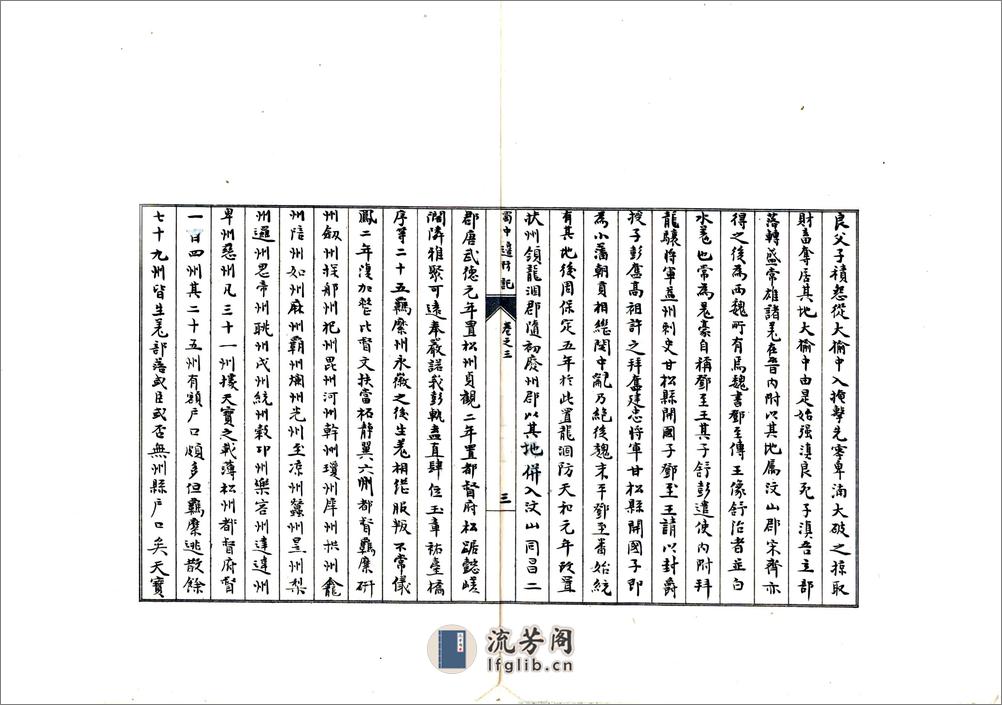 良父子積怨從大榆中入掩擊先零卑湳大破之掠取
財畜奪居其地大榆中由是始强滇良死子滇吾立部
落轉盛常雄諸羌在晉內附以其地属汶山郡宋齊亦
得之後為西魏所有馬魏書鄧至傳王像舒治者並白
水羗也常為羗豪自稱鄧至王其子舒彭遣使內附拜
龍驤將軍益州刺史甘松縣開國子鄧至王請以封爵
授子彭奮高祖許之拜奮建忠將軍甘松縣開國子即
為小藩朝貢相繼関中亂乃絕後魏末平鄧至番始統
有其地後周保定五年於此置龍涸防天和元年改置
狀州領龍涸郡隨初慶州郡以其地併入汶山同昌二
蜀中邊防記 卷之三 三
郡唐武德元年置松州貞觀二年置都督府松踞懿嵯
濶隣雅叢可遠奉嚴諾莪彭軌盍直肆位玉章祐臺橋
序等二十五羈縻州永徽之後生羗相继服叛不常儀
鳳二年復加整比督文扶當柘静翼六州都督羈縻研
州劔州探那州䄫州毘州河州幹州瓊州犀州拱州龕
州陪州如州麻州霸州㶊州光州至凉州蠶州曅州梨
州邏州思帝州眺州戍州統州榖邛州樂客州達違州
卑州慈州凡三十一州㩀天寶之載薄松州都督府督
一百四州其二十五州有額戶口頗多但羈縻逃散餘
七十九州皆生羗部落或臣或否無州縣戶口矣天寶
流芳阁
lfglib.cn